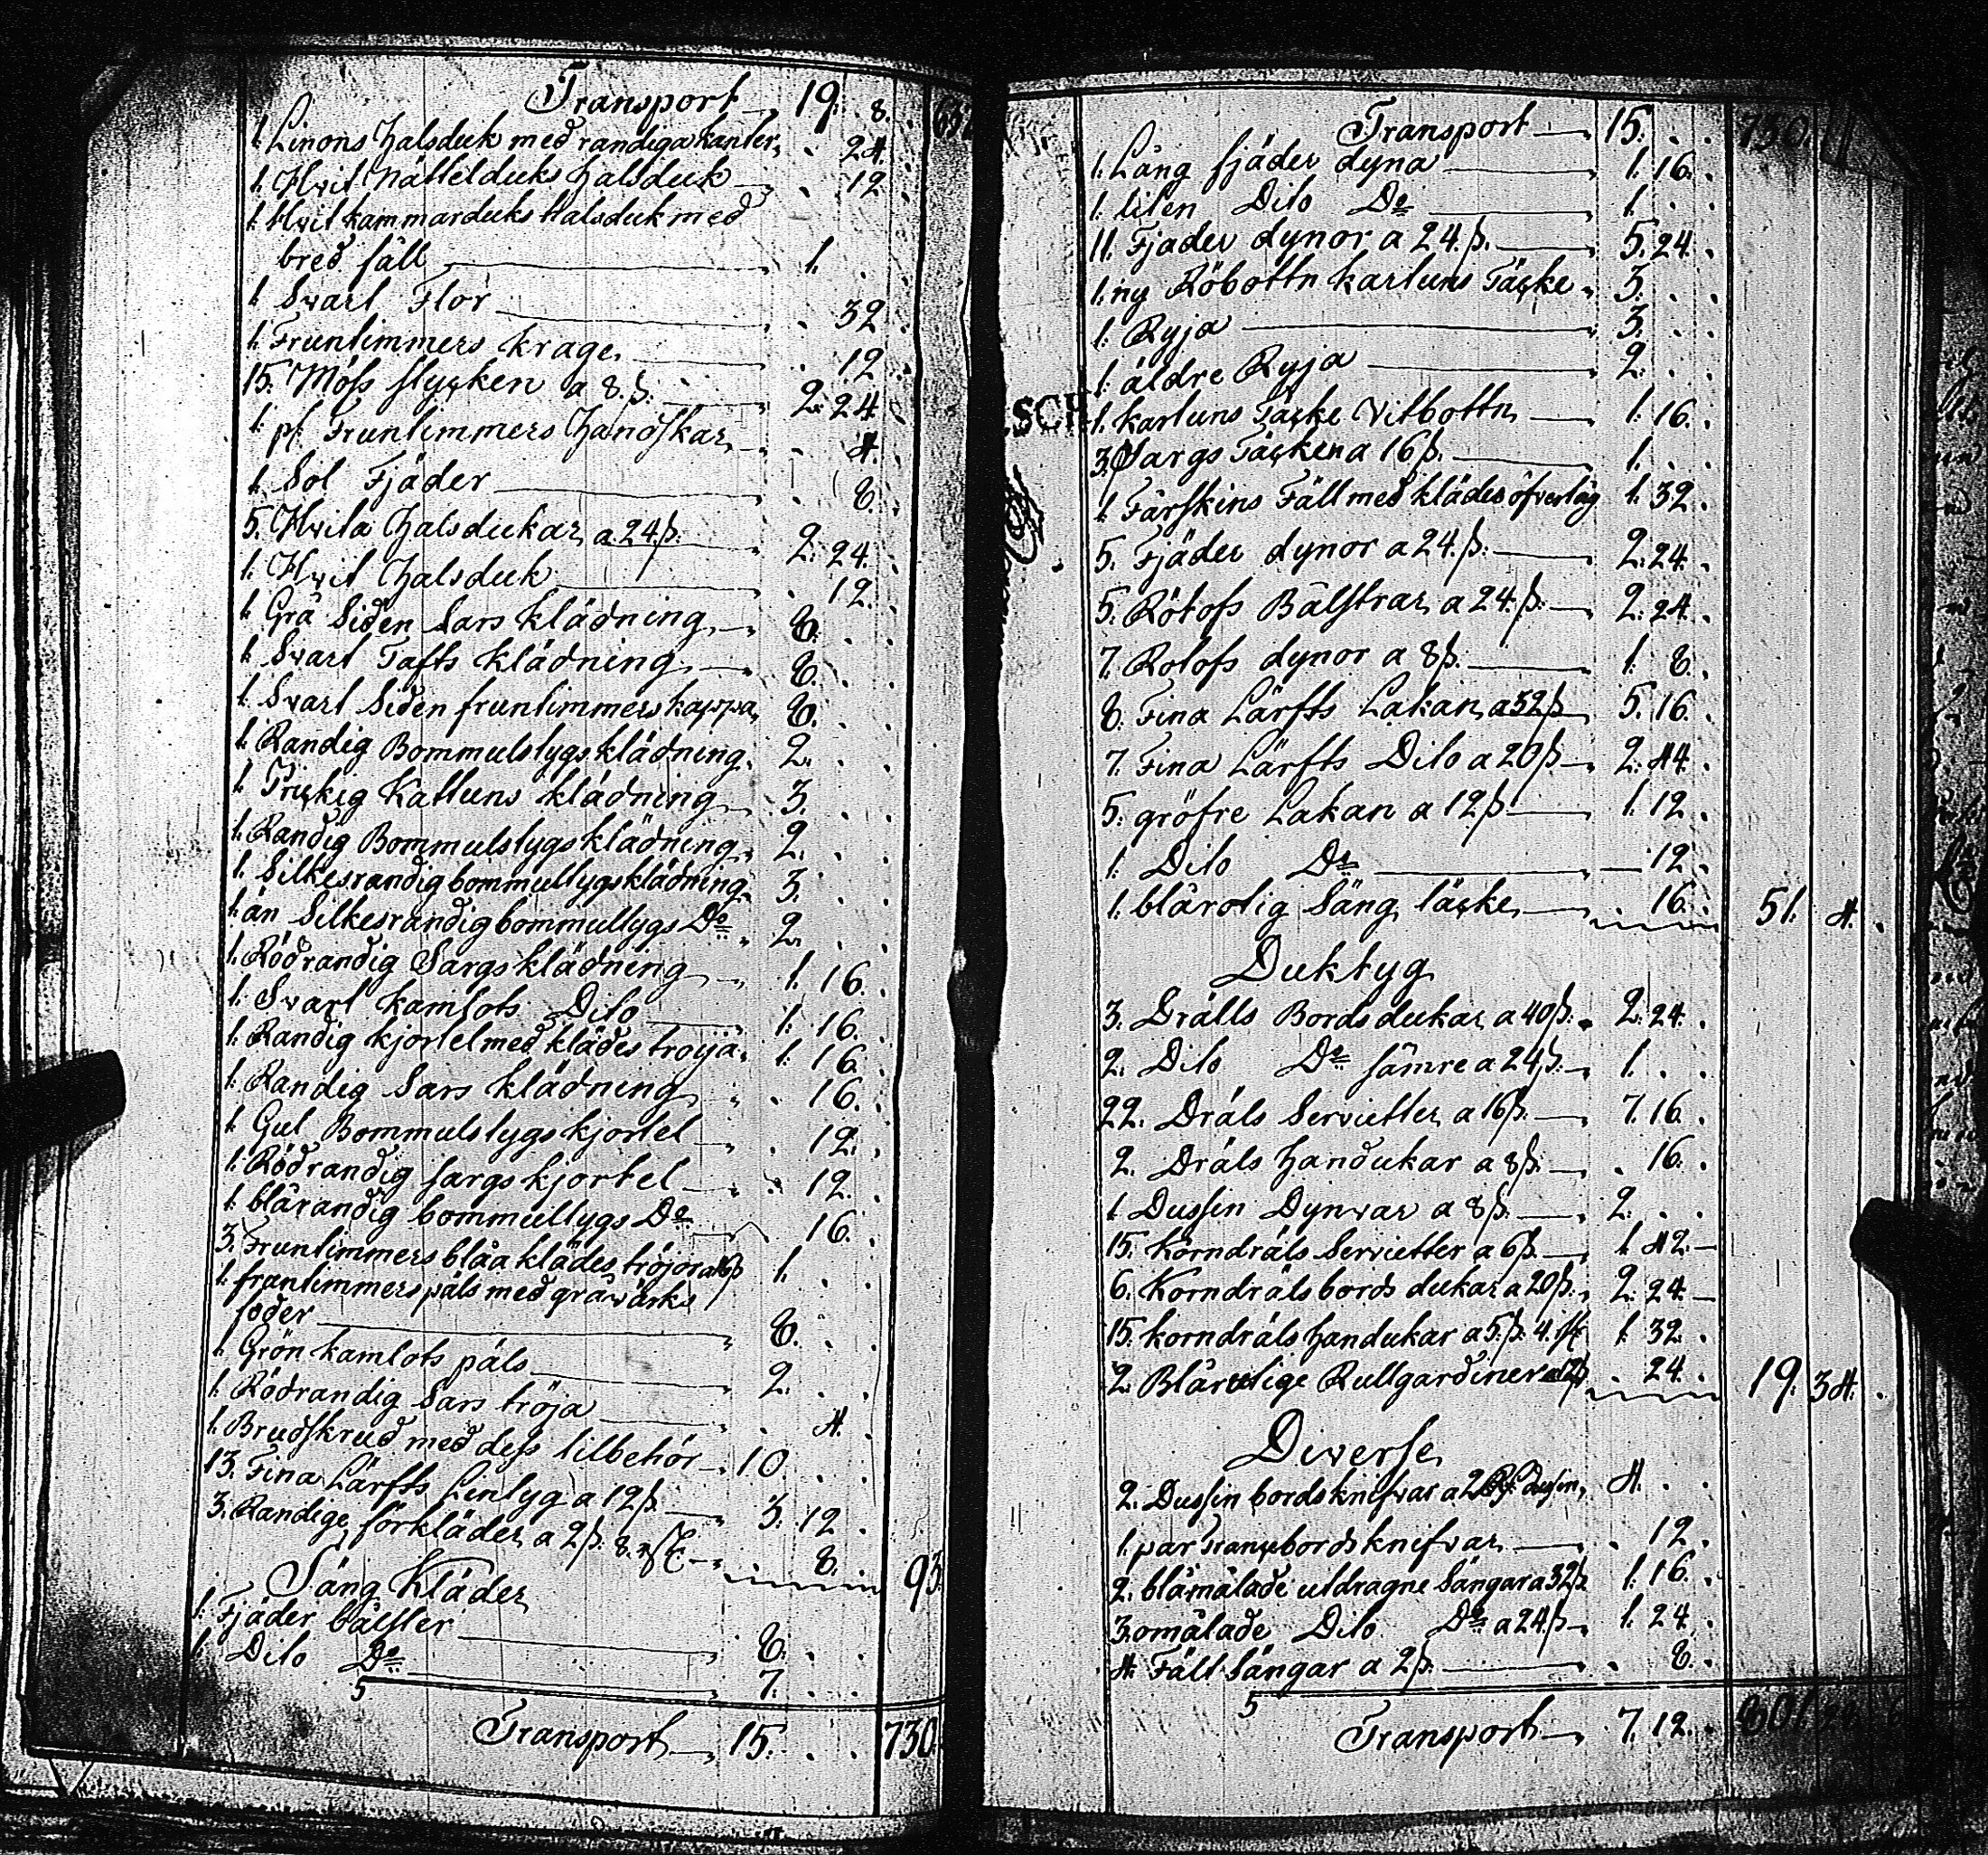 Transport 19. 8.
1. Linons Halsduk med randiga kanter . 24.
1. Hvit Nättelduks Halsduk . 12.
1. Hvit kammarduks Halsduk med
bred fåll 1. .
1. Svart Flor . 32.
1. Fruntimmers krage . 12.
15. Möss stycken a 8. ß. 2. 24.
1. pr Fruntimmers Handskar . 4.
1. Sol Fjäder . 8.
5. Hvita Halsdukar a 24 ß. 2. 24.
1. Hvit Halsduk . 12.
1. Grå Siden Sars klädning 8. .
1. Svart Tafts klädning 8. .
1. Svart Siden fruntimmers kappa 8. .
1. Randig Bommulstygs klädning 2. .
1. Prickig Kattuns klädning 3. .
1. Randig Bommulstygs klädning 2. .
1. Silkesrandig bommultygs klädning 3. .
1. än Silkesrandig bommultygs Do 2. .
1. Rödrandig Sargs klädning 1. 16.
1. Svart kamlots Dito 1. 16.
1. Randig kjortel med klädes tröya 1. 16.
1. Randig Sars klädning . 16.
1. Gul Bommulstygs kjortel . 12.
1. Rödrandig sargs kjortel . 12.
1. blårandig bommultygs Do . 16.
3. Fruntimmers blåa klädes tröjor a 16 ß 1. .
1. fruntimmers päls med gråvärks
foder 8. .
1. Grön kamlots päls 2. .
1. Rödrandig Sars tröja . 4.
1. Brudskrud med dess tilbehör 10 . .
13. Fina Lärfts Lintyg a 12 ß 3. 12.
3. Randige förkläder a 2 ß. 8. . 8. 93.
Säng Kläder
1. Fjäder bålster 8. .
1. Dito Do 7. .
5
Transport 15. . . 730.
Transport 15. . . 730.
1. Lång fjäder dyna 1. 16.
1. liten Dito Do 1. .
11. Fjäder dynor a 24. ß. 5. 24.
1. ny Röbottn kartuns Täcke 3. .
1. Ryja 3. .
1. äldre Ryja 2. .
1. kartuns Täcke Vitbottn 1. 16.
3. Sargs Täcken a 16 ß. 1. .
1. Fårskins Fäll med klädes öfverlag 1. 32.
5. Fjäder dynor a 24. ß. 2. 24.
5. Rötofs Bålstrar a 24. ß. 2. 24.
7. Rotofs dynor a 8 ß. 1. 8.
8. Fina Lärfts Lakan a 32 ß 5. 16.
7. Fina Lärfts Dito a 20 ß 2. 44.
5. gröfre Lakan a 12 ß 1. 12.
1. Dito Do 12.
1. blårotig Säng täcke . 16. 51. 4.
Duktyg
3. Drälls Bordsdukar a 40 ß. 2. 24.
2. Dito Do sämre a 24 ß. 1. .
22. Dräls Servietter a 16 ß. 7. 16.
2. Dräls Handukar a 8 ß. . 16.
1 Dussin Dynvar a 8 ß. 2. .
15. Korndräls Servietter a 6 ß. 1. 42.
6. Korndräls bords dukar a 20 ß. 2. 24.
15. korndräls Handukar a 5. ß. 4. 1. 32.
2. Blårutige Rullgardiner a 12 ß . 24. 19. 34.
Diverse
2. Dussin bordsknifvar a 2 dusin 4. .
1. par Transchbordsknifvar . 12.
2. blåmålade utdragne Sängar a 32 ß. 1. 16.
3. omålade Dito Do a 24 ß 1. 24
4. Fält Sängar a 2 ß. . 8.
5
Transport 7. 12. 801.